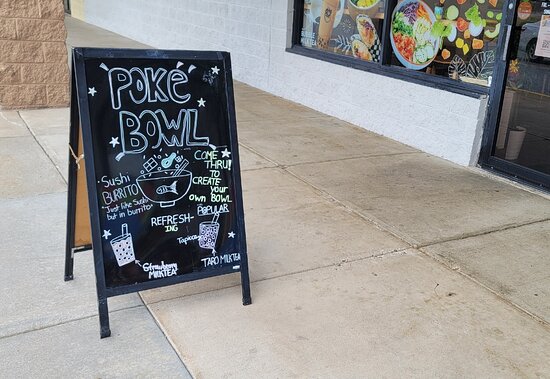 POKé
BOWL
Sushi
BURRITO
Just like Sushi
but in burrito
COME
THRU!
TO
CREATE
your
own BOWL
REFRESH-
ING
POPULAR
Tapioca
Strawberry
MILKTEA
TARO MILKTEA